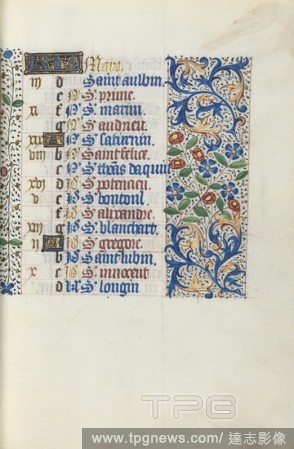 Mars.
iij d Saint aulbin.
e S. prime.
xi f S. martin.
g S. audrieu.
xix A S. saturnin.
viij b Saint felice.
c S. thomas daquin
xvj d S. potencien.
v e S. bontonl
f S. alixandre.
xiij g S. blanchart.
ij A S. gregoire.
b Saint lubin.
x c S. innocent
d S. longin
TPG
www.tpgnews.com / 達志影像